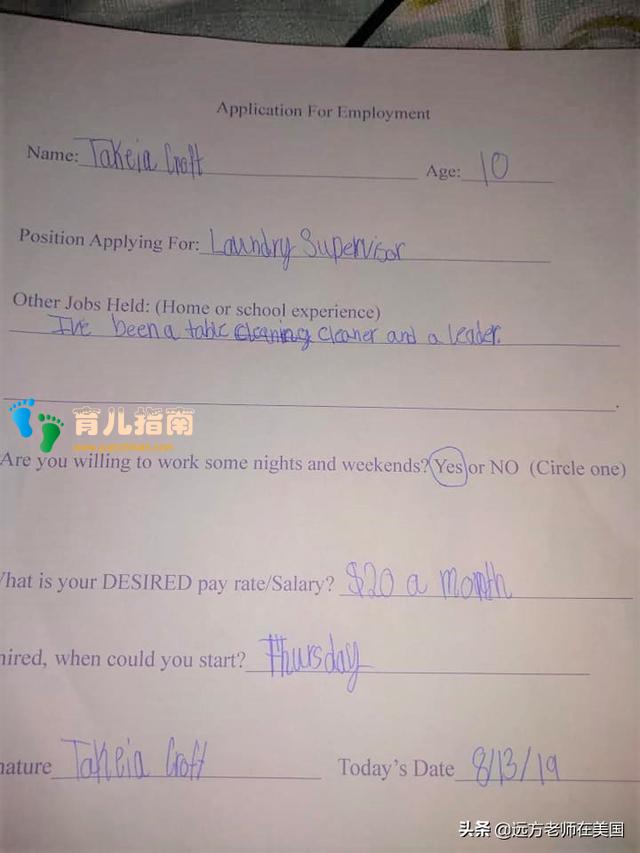 Application For Employment
Name: Takeia Croft Age: 10
Position Applying For: Laundry Supervisor
Other Jobs Held: (Home or school experience)
I've been a table cleaning cleaner and a leader.
育儿指南
Are you willing to work some nights and weekends? Yes or NO (Circle one)
What is your DESIRED pay rate/Salary? $20 a month
hired, when could you start? Thursday
nature Takeia Croft Today's Date 8/13/19
头条 @远方老师在美国